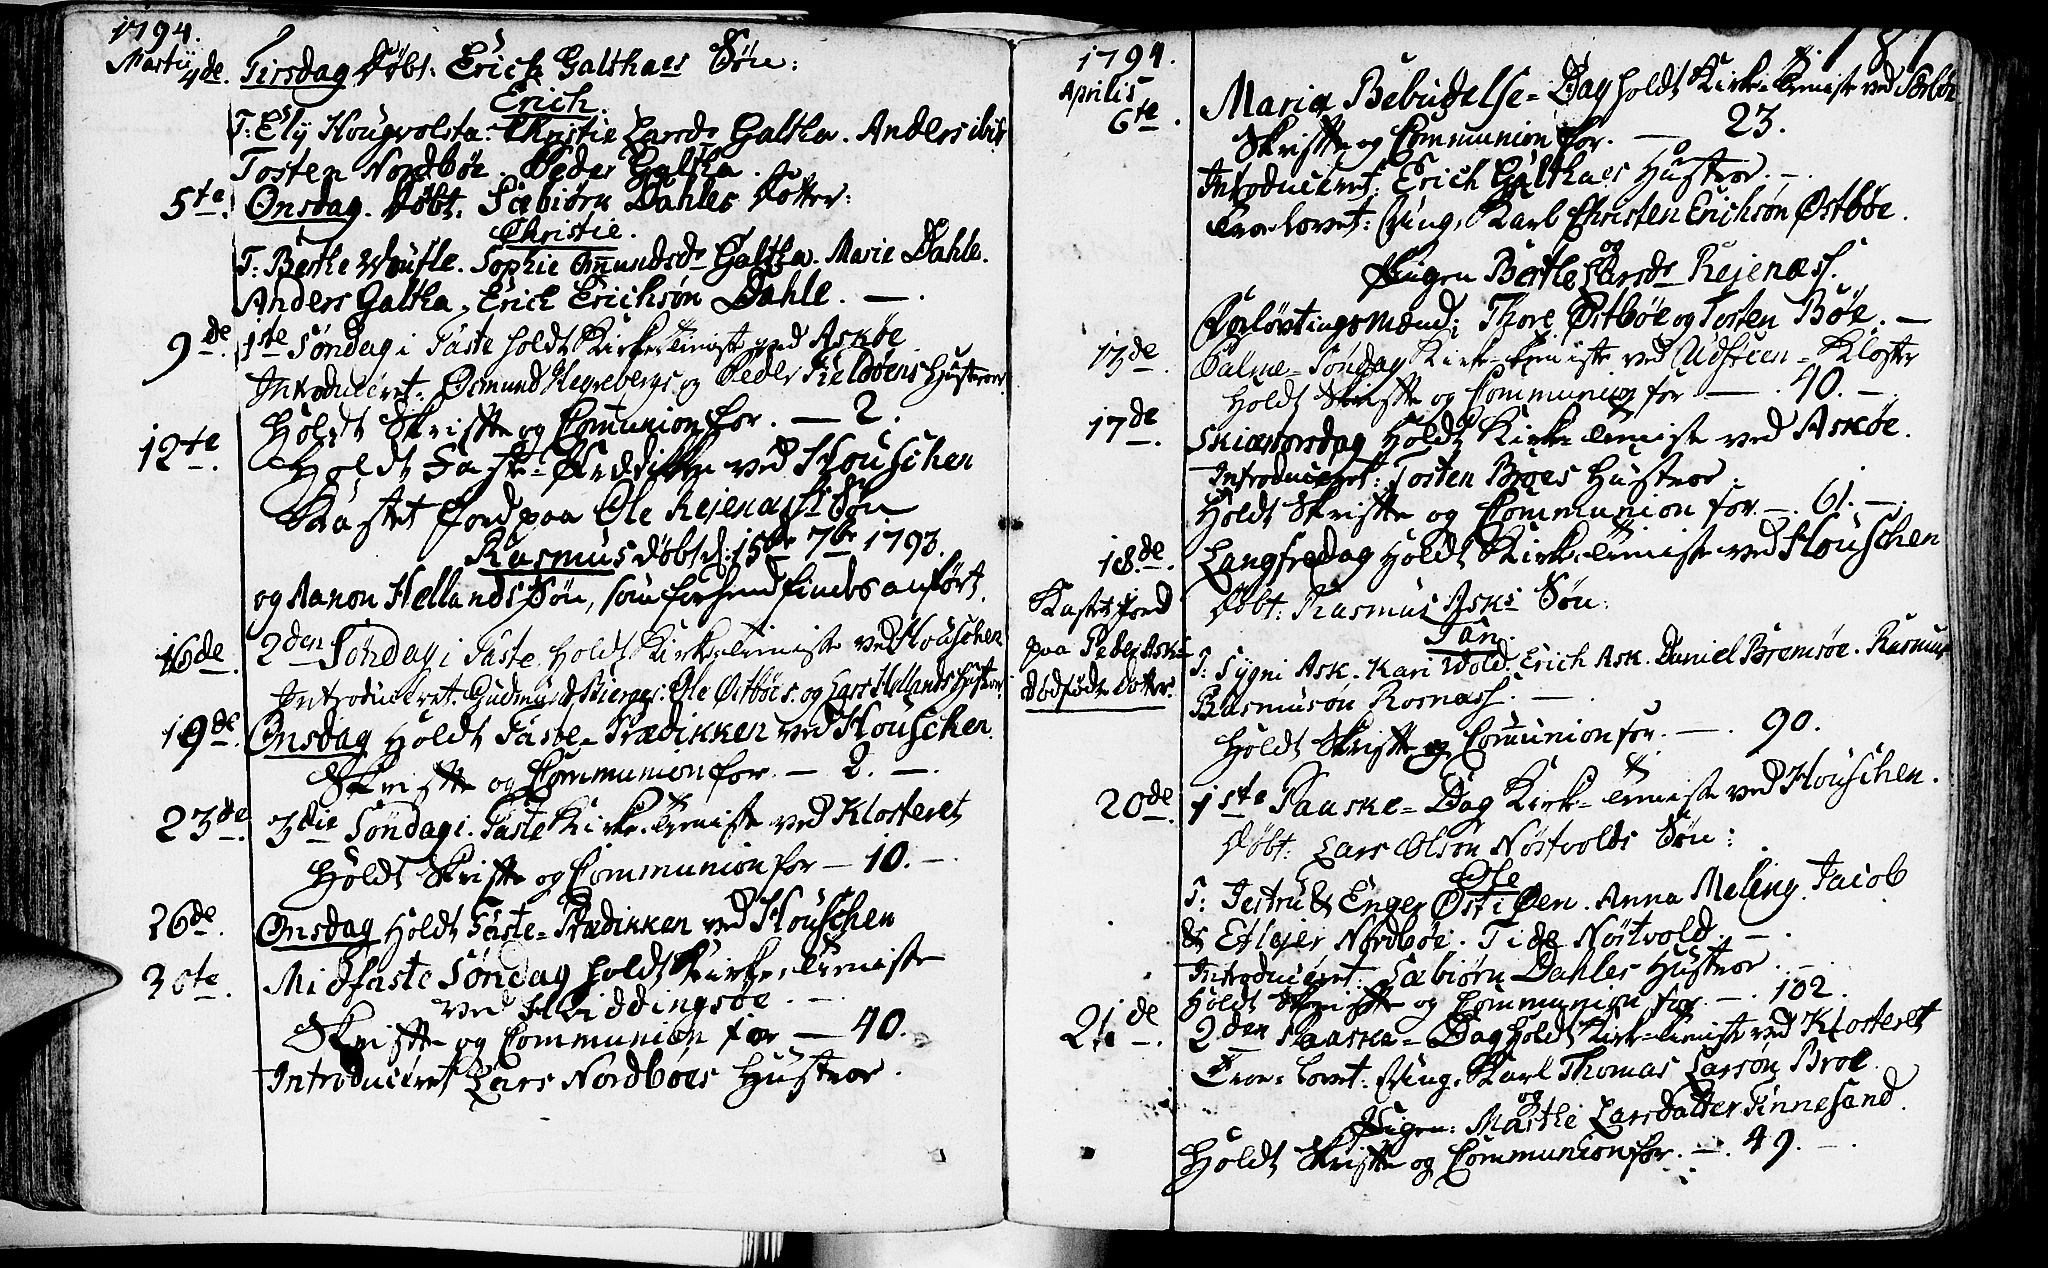 1794.
Martij
4de. Tirsdag Døbt: Erich Galthaes Søn:
Erich.
T: Ely Hougvolsta. Christie Larsdr Galtha. Anders ibid
Tosten Nordbøe. Peder Galtha.
5te. Onsdag. Døbt. Sæbiørn Dahles Dotter:
Christie.
T: Berthe Woufle. Sophie Omundsdr Galtha. Marie Dahle.
Anders Galtha. Erich Erichsøn Dahle. —.
9de. 1ste Søndag i Faste holdt Kirke-tieniste ved Askøe
Introduceret: Osmund Hegrebergs og Peder Fieldøens Hustroer.
Holdt Skrifte og Communion for. — 2.
12te. Holdt Faste-Prædikke ved Houschen
Kastet Jord paa Ole Reienæss Søn
Rasmus Døbt d: 15de 7br 1793.
og Aanon Hellands Søn, som forhend findes anført.
16de. 2den Søndag i Faste holdt Kirke-tieniste ved Houschen
Introduceret. Gudmund Bierges. Ole Østbøes. og Lars Hellands Hustroer
19de. Onsdag Holdt Faste-Prædikken ved Houschen.
Skrifte og Communion for. — 2. —.
23de. 3die Søndag i Faste Kirke-tieniste ved Klosteret
Holdt Skrifte og Communion for — 10. —
26de. Onsdag Holdt Faste-Prædikken ved Houschen
30te. Midfaste Søndag holdt Kirke-tieniste
ved Hviddingsøe. —
Skrifte og Communion for — 40.
Introduceret Lars Nordbøes Hustroe.
1794. 181
Aprilis
6te. Mariæ Bebudelse-Dag holdt Kirke-tieniste ved
Skrifte og Communion for. — 23.
Introduceret: Erich Galthaes Hustroe. —
Trolovet: Ung-Karl Christen Erichsøn Østbøe.
og
Pigen Berthe Larsdr Reienæss.
Forlovingsmænd: Thore Østbøe og Tosten Bøe. —
13de. Palme-Søndag Kirke-tieniste ved Udsteen-Kloster
Holdt Skrifte og Communion for — 40. —
17de. Skiærtorsdag Holdt Kirke-tieniste ved Askøe.
Introduceret: Tosten Broes Hustroe.
Holdt Skrifte og Communion for —. 61. —.
18de. Langfredag Holdt Kirke-tieniste ved Houschen
Døbt: Rasmus Asks Søn:
Jan.
T: Sygni Ask. Kari Wold. Erich Ask. Daniel Bremsøe. Rasmus
Rasmusøn Rosnæss. —
Holdt Skrifte og Communion for. —. 90.
Kastet Jord
paa Peder Asks
dødfødte Dotter.
20de. 1ste Paaske-Dag Kirke-tieniste ved Houschen.
Døbt: Lars Olsøn Nøstvolds Søn:
Ole
T: Jestru & Enger Østiøen. Anna Meling. Jacob
& Eflajer Nordbøe. Tide Nøstvold. —.
Introduceret: Sæbiørn Dahles Hustroe. —
Holdt Skrifte og Communion for. —. 102.
21de. 2den Paaske-Dag holdt Kirke-tieniste ved Klosteret
Trolovet: Ung-Karl Thomas Larsøn Broe.
og
Pigen: Marthe Larsdatter Finnesand.
Holdt Skrifte og Communion for. —. 49. —.